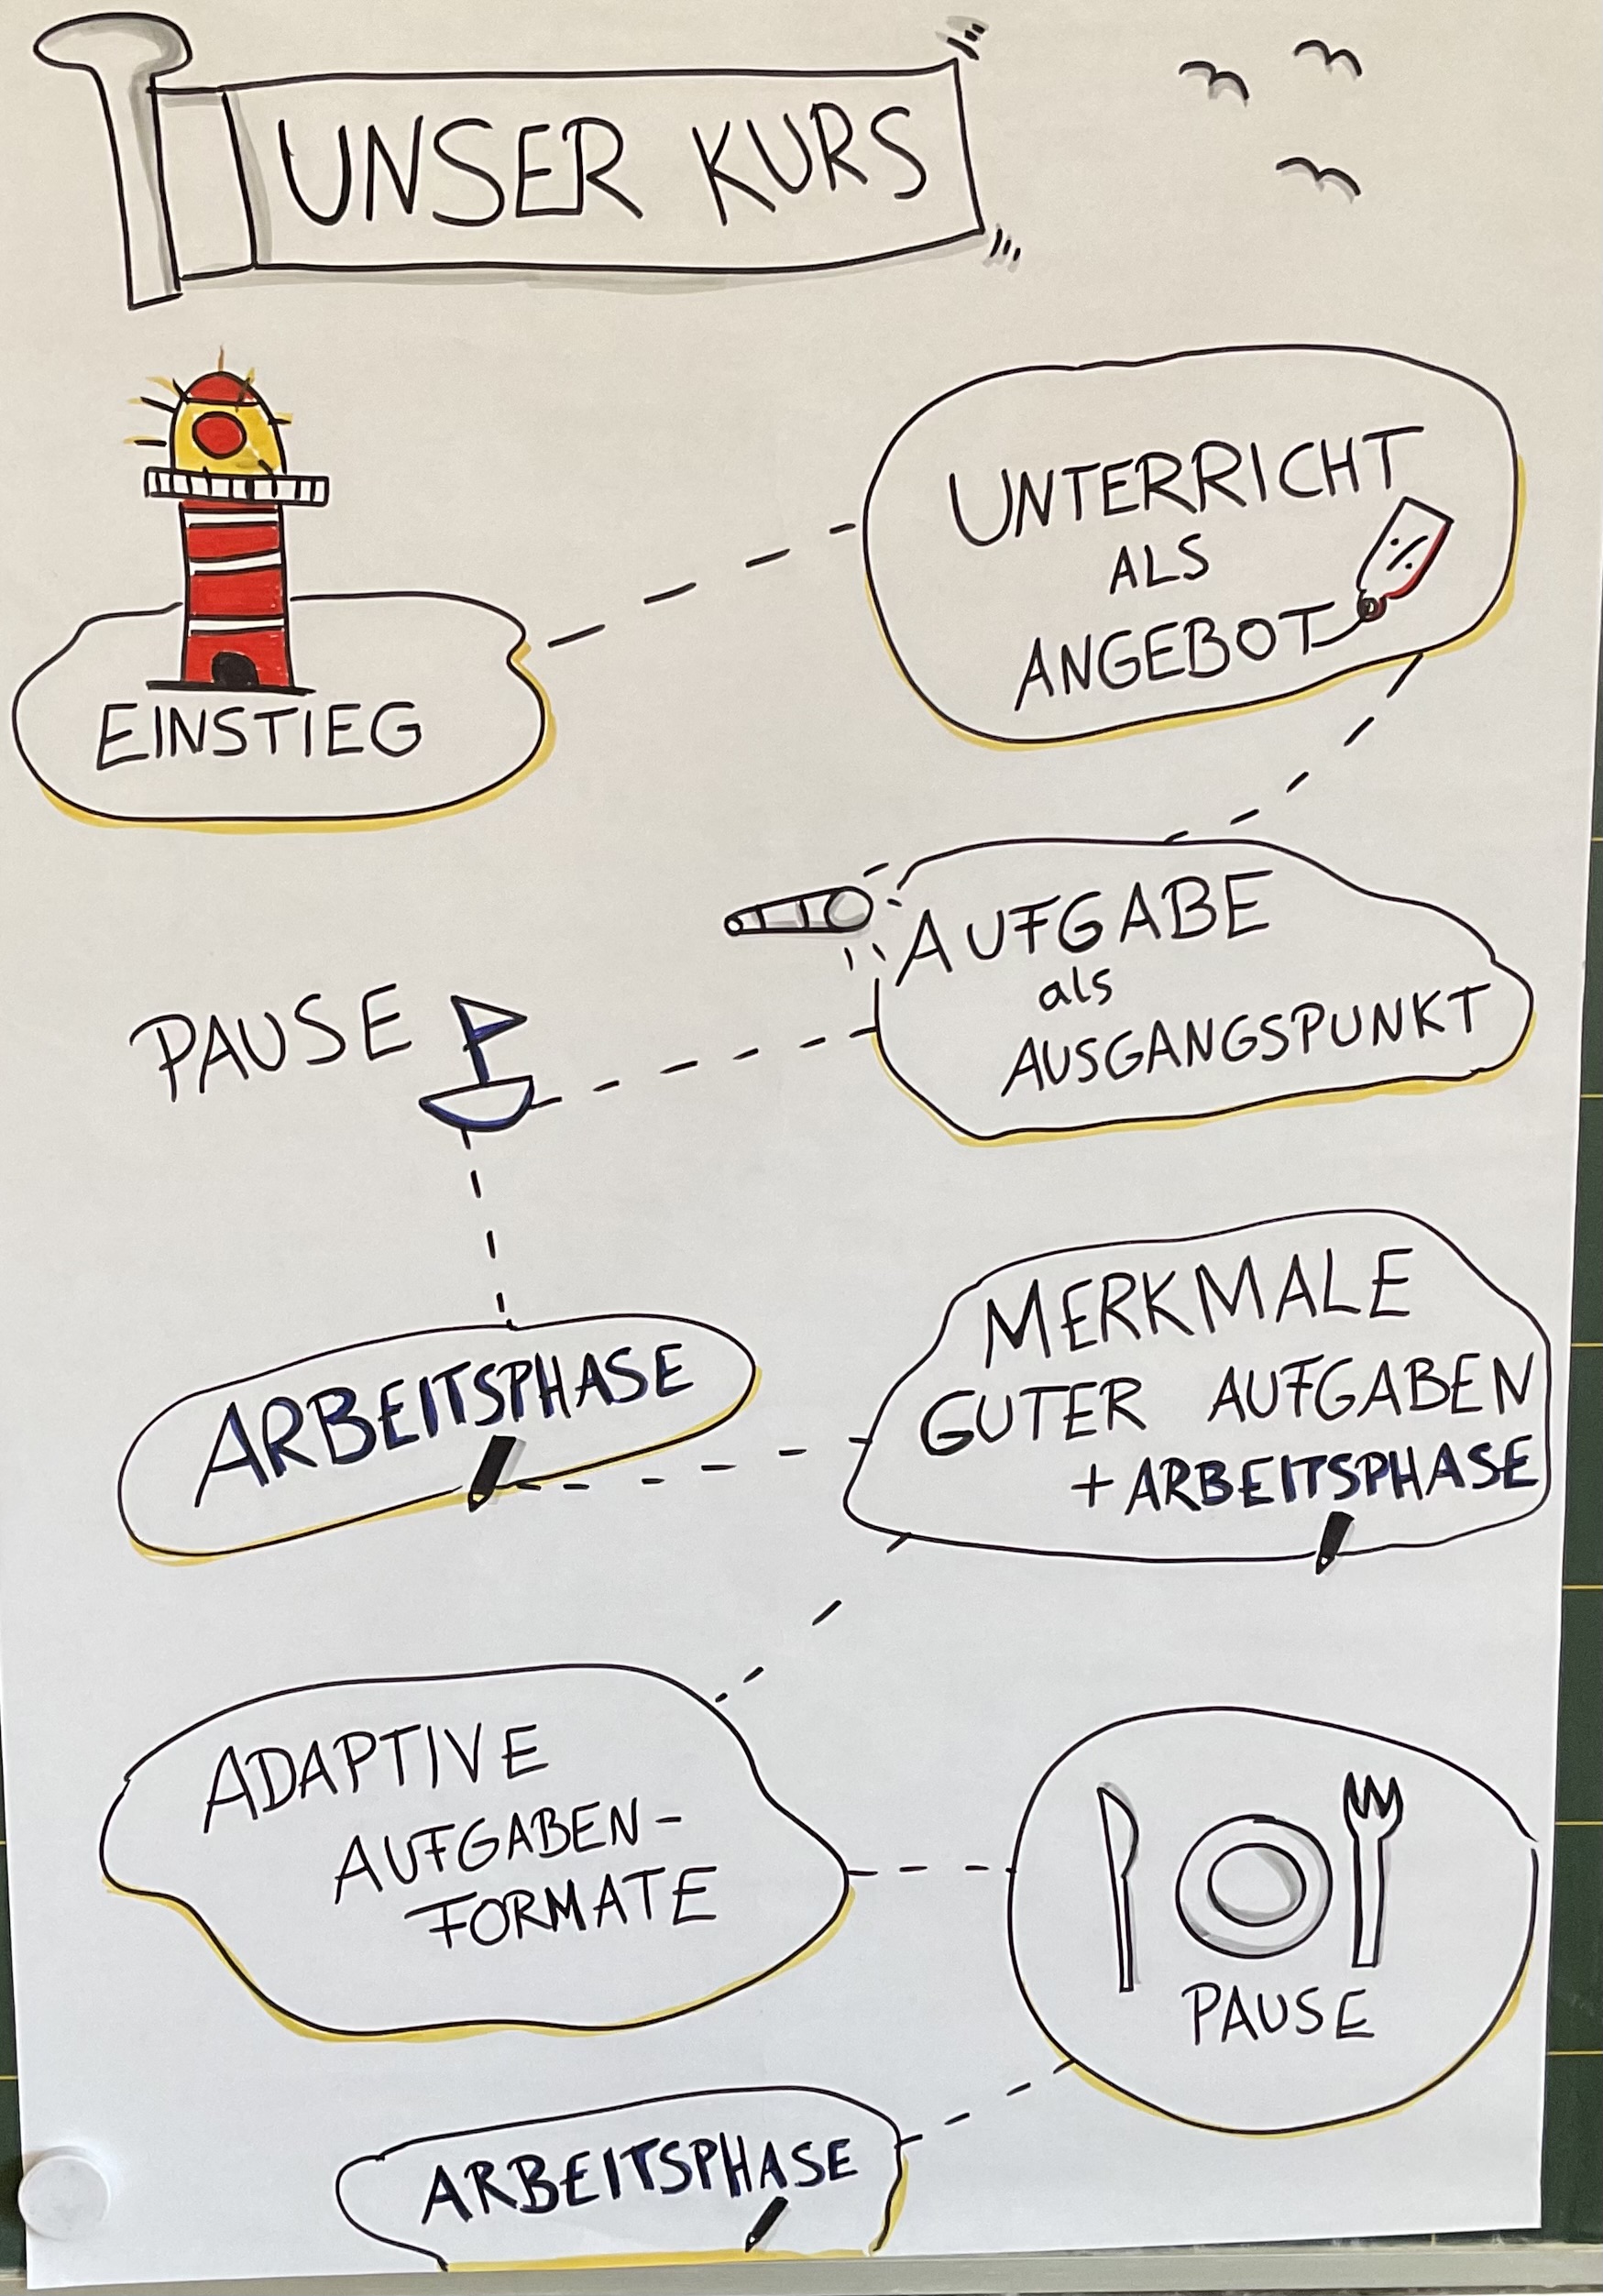 UNSER KURS
EINSTIEG
UNTERRICHT
ALS
ANGEBOT
%
AUFGABE
als
AUSGANGSPUNKT
PAUSE
ARBEITSPHASE
MERKMALE
GUTER AUFGABEN
+ ARBEITSPHASE
ADAPTIVE
AUFGABEN-
FORMATE
PAUSE
ARBEITSPHASE